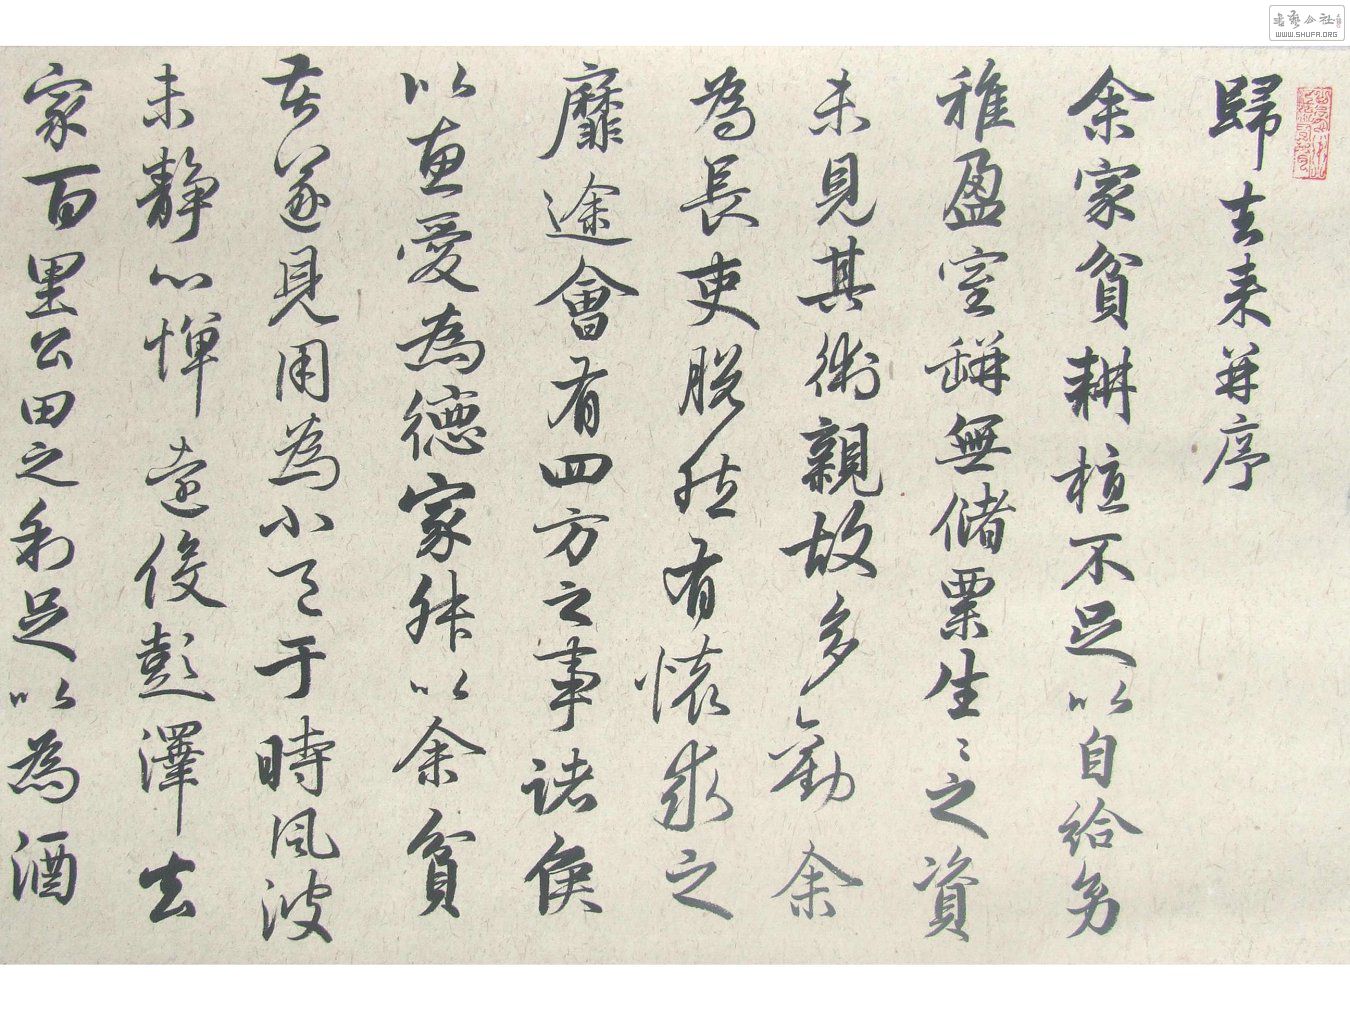 歸去来并序
余家貧耕植不足以自給幼
稚盈室缾無儲粟生〻之資
未見其術親故多勸余
為長吏脱然有懷求之
靡途會有四方之事諸侯
以惠愛為德家叔以余貧
苦遂見用為小邑于時風波
未静心憚遠役彭澤去
家百里公田之利足以為酒
WWW.SHUFA.ORG